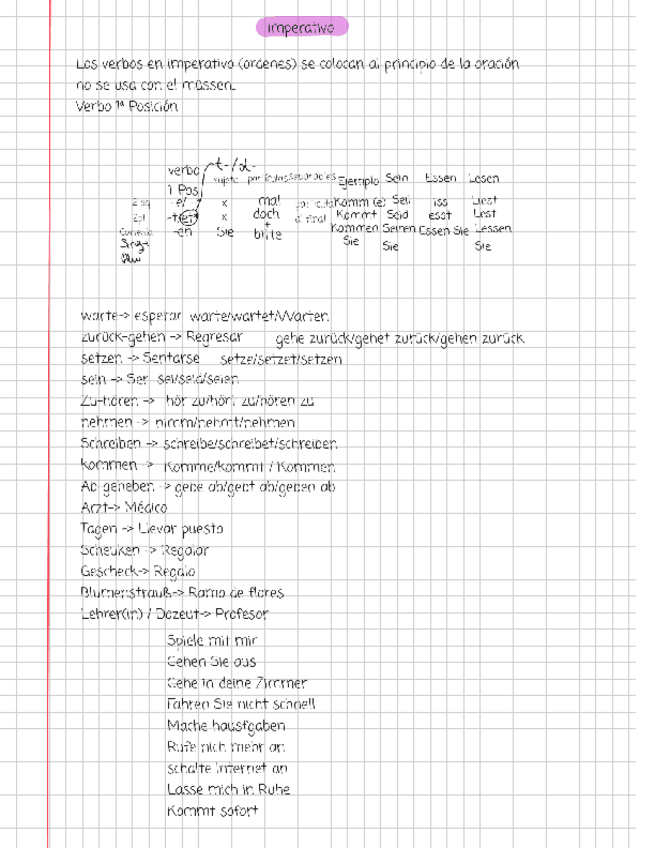 imperativo
Los verbos en imperativo (ordenes) se colocan al principio de la oración
no se usa con el müssen.
Verbo 1ª Posición
verbo t-/d-
1 Pos sujeto partículas separables Ejemplo Sein Essen Lesen
2 sg -e/ x mal partícula Komm (e) Sei iss Liest
2pl -t/et x doch al final Kommt Seid esst Lest
Cortesía -en Sie + bitte Kommen Seinen Essen Sie Lessen
Sing Sie Sie Sie
warte-> esperar warte/wartet/Warten
zurück-gehen -> Regresar gehe zurück/gehet zurück/gehen zurück
setzen -> Sentarse setze/setzet/setzen
sein -> Ser sei/seid/seien
Zu-hören -> hör zu/hört zu/hören zu
nehmen -> nimm/nehmt/nehmen
Schreiben -> schreibe/schreibet/schreiben
kommen -> Komme/kommt / Kommen
Ab geheben -> gebe ab/gebt ab/geben ab
Arzt-> Médico
Tagen -> Llevar puesto
Scheuken -> Regalar
Gescheck-> Regalo
Blumenstrauß-> Ramo de flores
Lehrer(in) / Dozeut-> Profesor
Spiele mit mir
Gehen Sie aus
Gehe in deine Zimmer
Fahren Sie nicht schnell
Mache hausfgaben
Rufe nich mehr an
schalte Internet an
Lasse mich in Ruhe
Kommt sofort